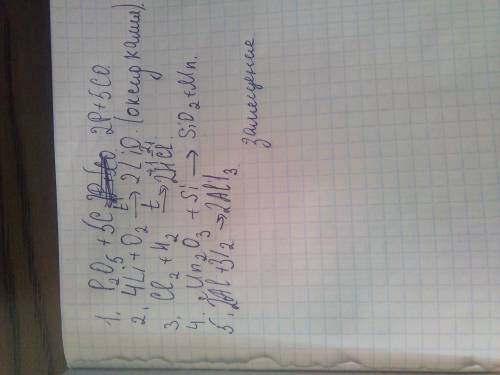 1. P₂O₅ + 5C 2P+5CO.
2. 4Li + O₂ →ᵗ 2Li₂O. (оксид калия).
3. Cl₂ + H₂ →ᵗ 2H⁺¹Cl⁻¹.
4. Mn₂O₃ + Si → SiO₂ + Mn.
5. 2Al + 3I₂ → 2AlI₃.
замещение.